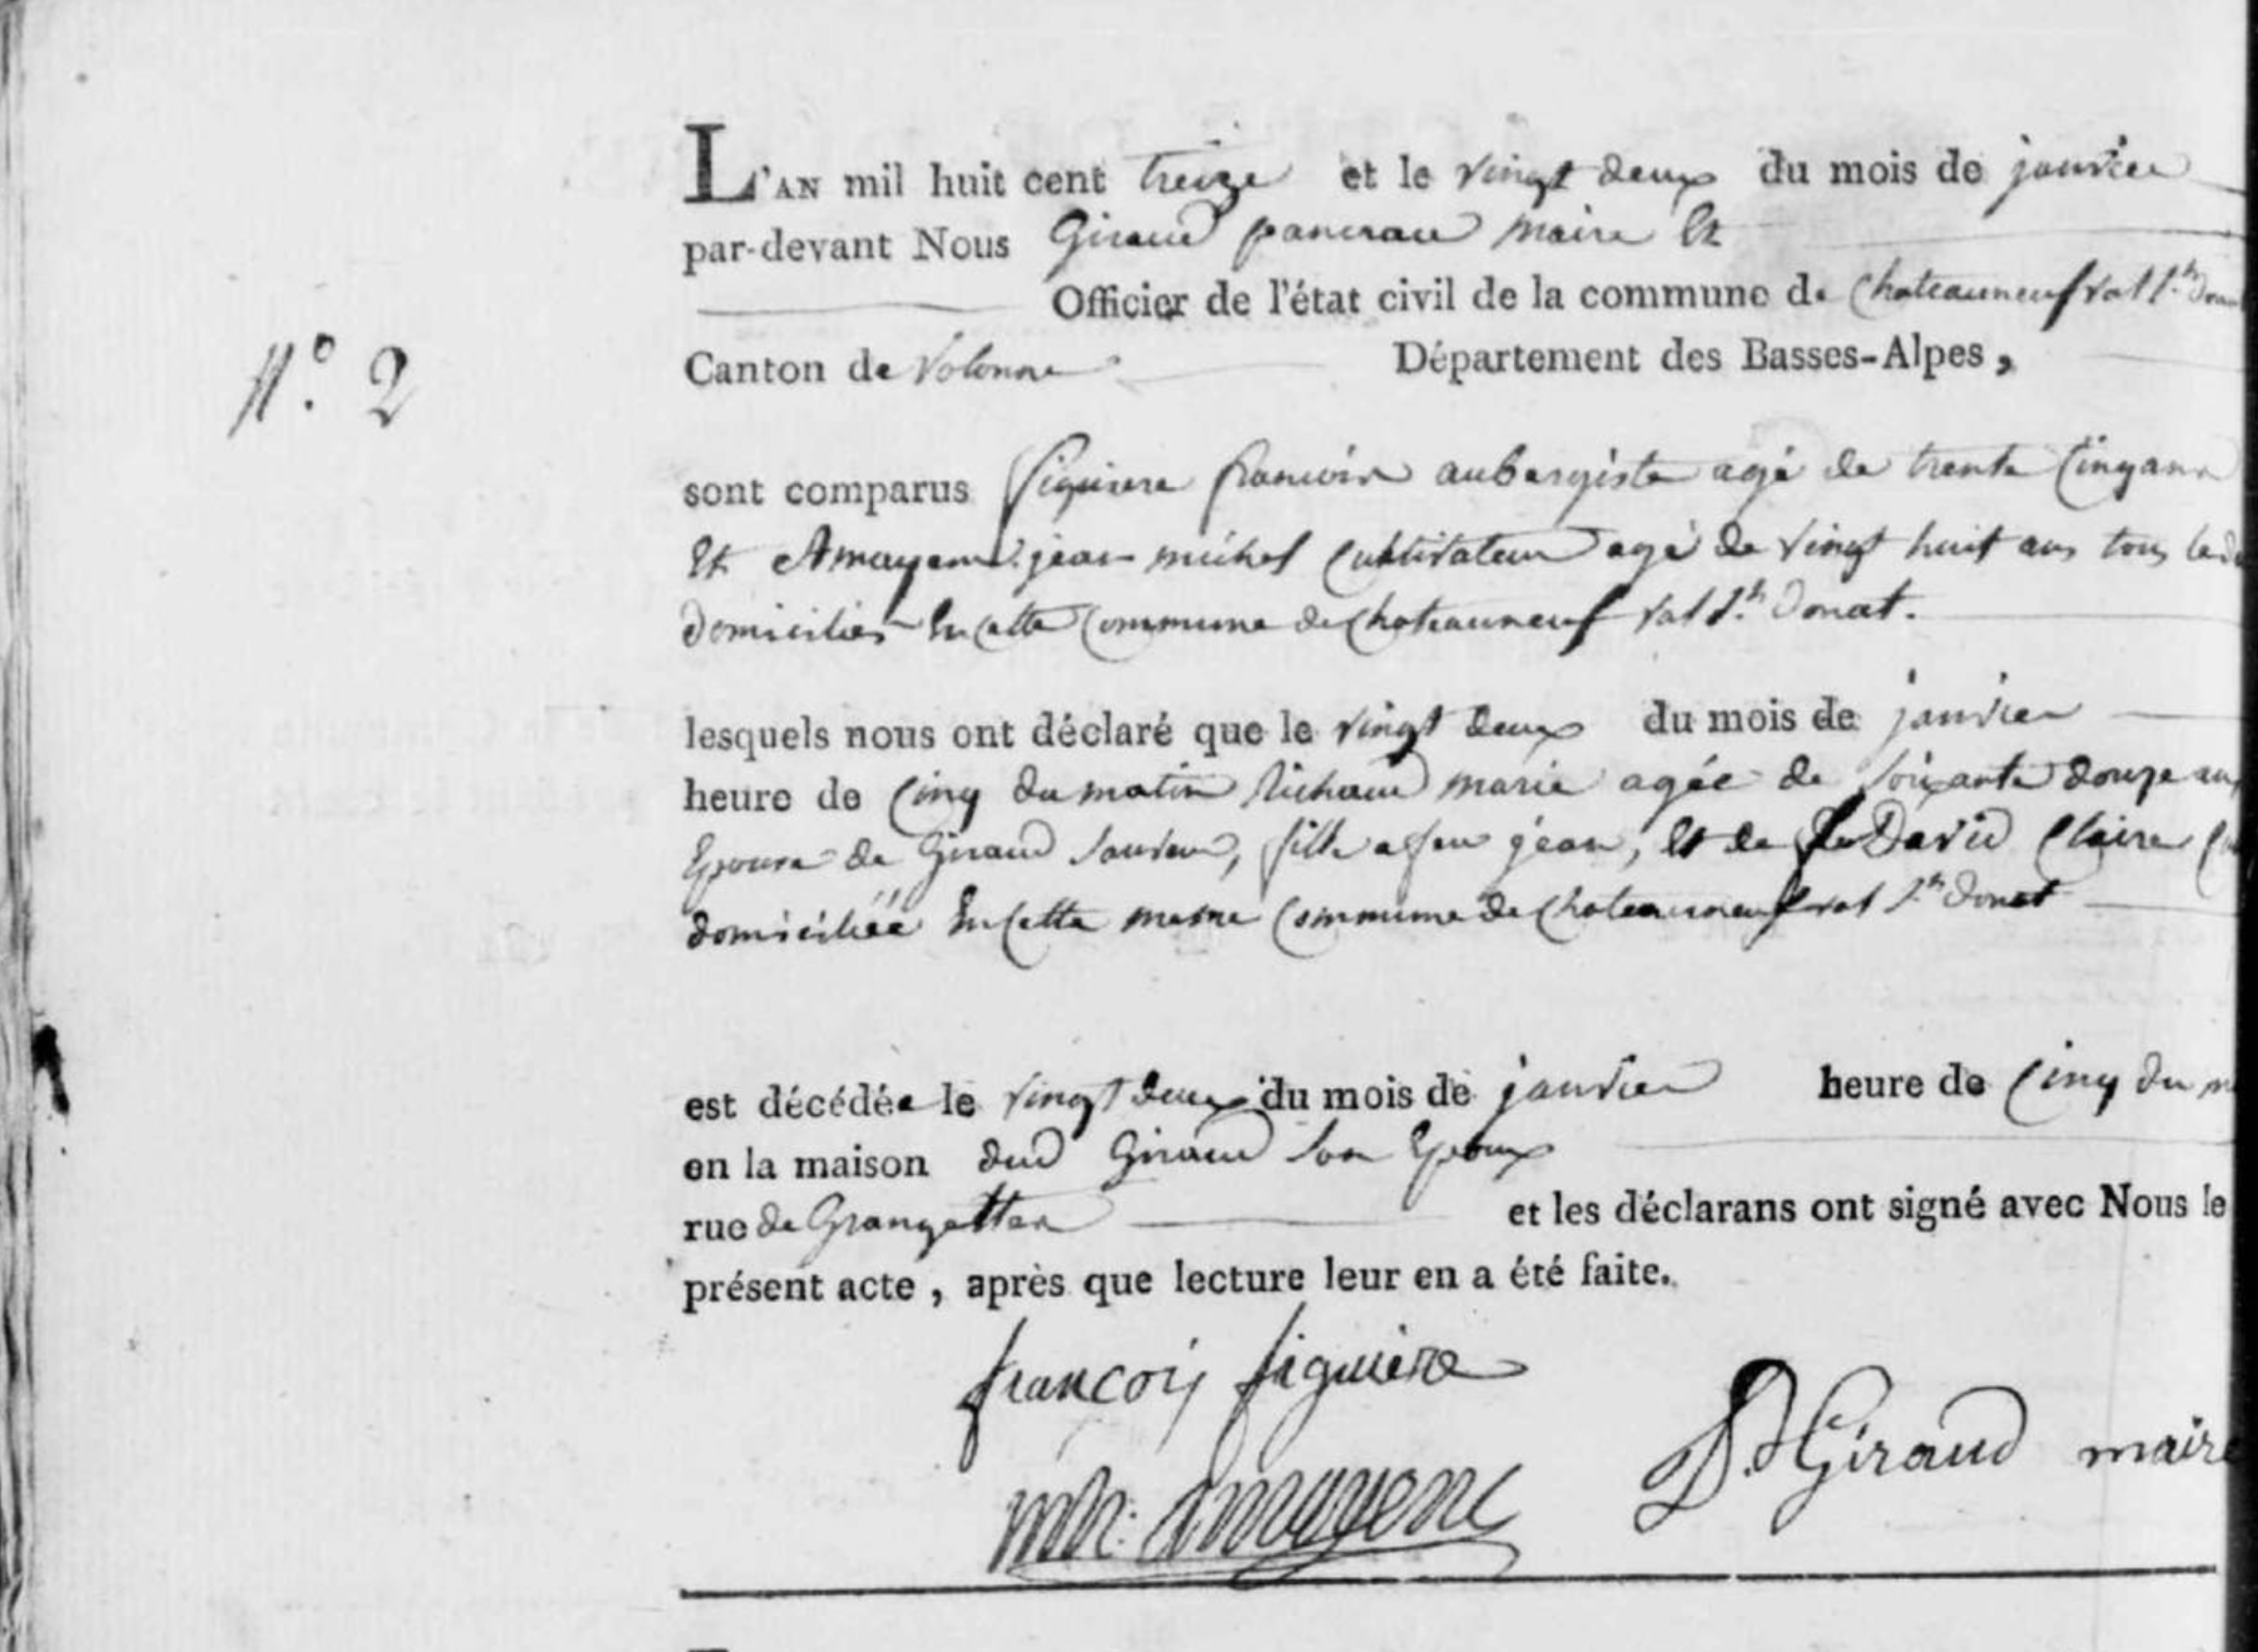 L'AN mil huit cent treize et le vingt deux du mois de janvier
par-devant Nous Giraud pancrace maire Et
Officier de l'état civil de la commune de Chateauneuf val St. Donat
N.° 2
Canton de Volonne Département des Basses-Alpes,
sont comparus figuiere francois aubergiste agé de trente Cinq ans
Et Amayenc jean michel Cultivateur agé de vingt huit ans tous
domiciliés En Cette Commune de Chateauneuf val St. Donat.
lesquels nous ont déclaré que le vingt deux du mois de janvier
heure de Cinq du matin Richaud marie agée de soixante douze ans
Epouse de Giraud sauveur, fille a feu jean, Et de David Claire
domiciliéé En Cette meme Commune de Chateauneuf val St. Donat
est décédée le vingt deux du mois de janvier heure de Cinq du
en la maison dud Giraud son Epoux
rue de Grangettes et les déclarans ont signé avec Nous le
présent acte, après que lecture leur en a été faite.
françois figuière
mh: amayenc Giraud maire